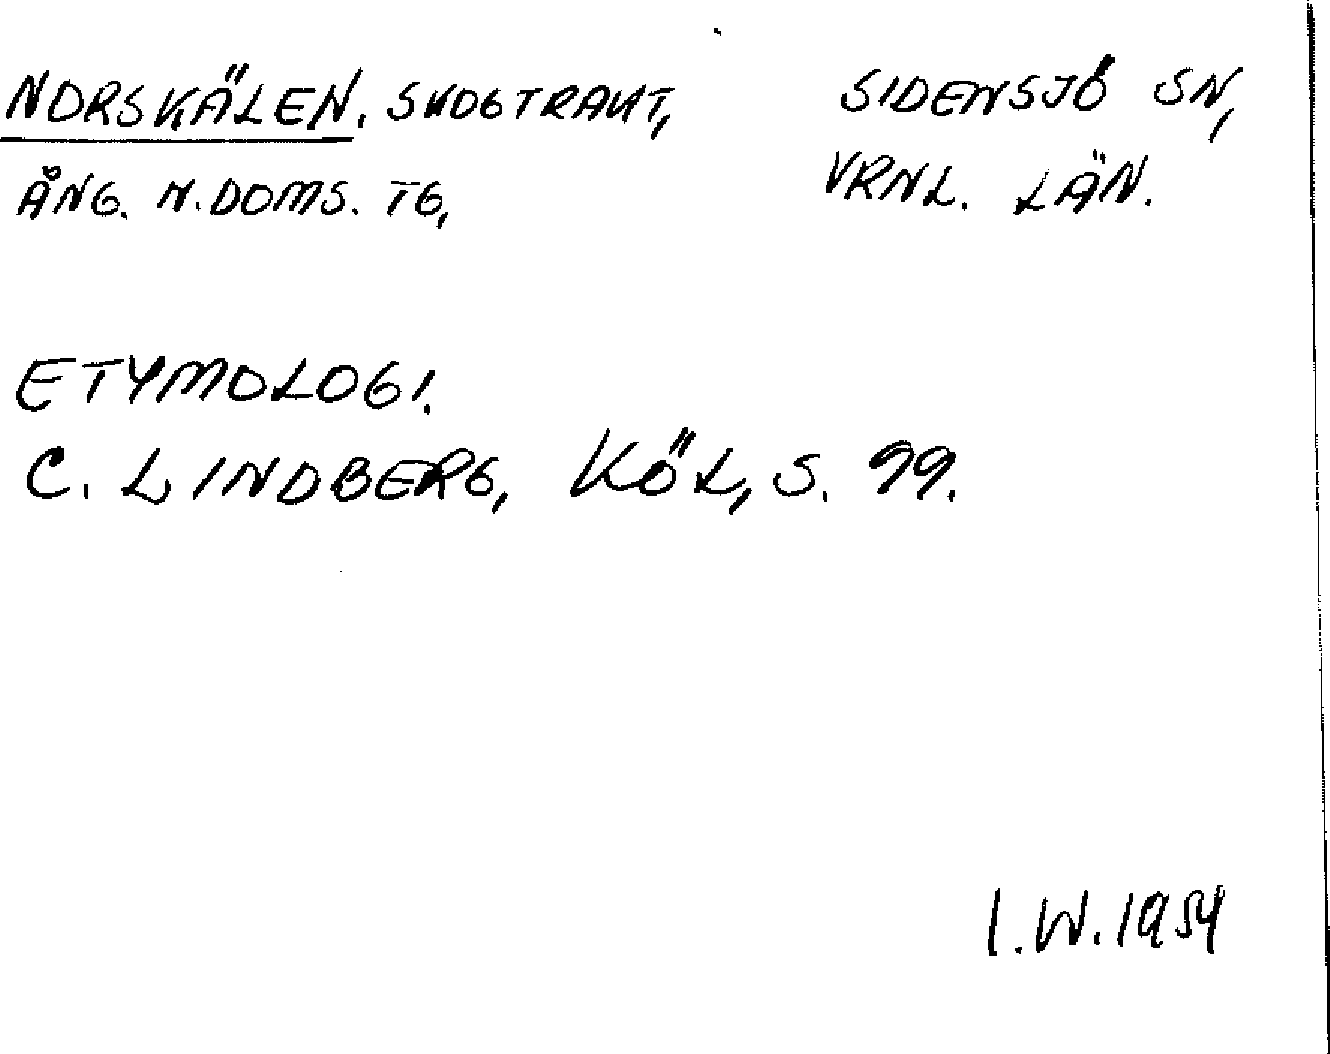 NORSKÄLEN. SKOGTRAKT, SIDENSJÖ SN,
ÅNG. N. DOMS. TG, VRNL. LÄN.
ETYMOLOGI.
C. LINDBERG, KÖL, S. 99.
I.W. 1954